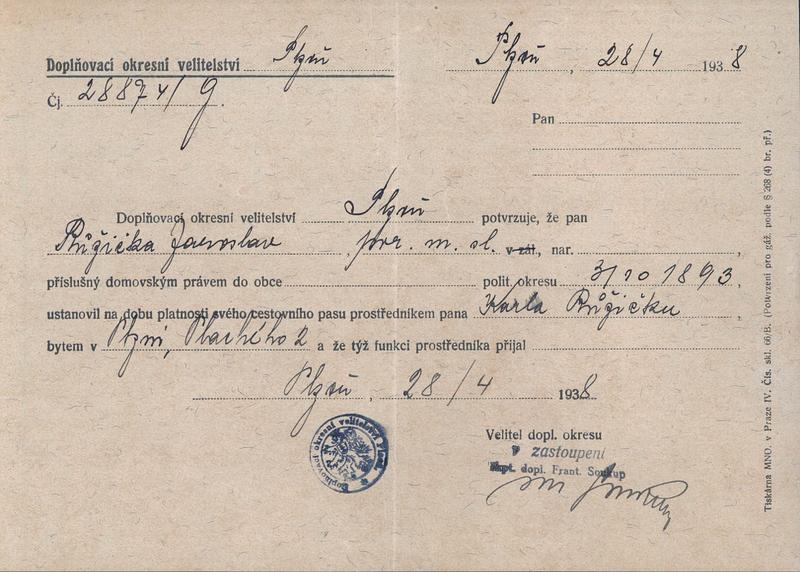 Doplňovací okresní velitelství Plzeň
Plzeň, 28/4 1938
Čj. 28874/9.
Pan
Doplňovací okresní velitelství Plzeň potvrzuje, že pan
Růžička Jaroslav, por. m. sl. v zál, nar.,
příslušný domovským právem do obce polit. okresu 3/10 1893,
ustanovil na dobu platnosti svého cestovního pasu prostředníkem pana Karla Růžičku,
bytem v Plzni, Plachého 2 a že týž funkci prostředníka přijal
Plzeň, 28/4 1938.
Velitel dopl. okresu
v zastoupení
škpt. dopl. Frant. Soukup
Doplňovací okresní velitelství Plzeň
Tiskárna MNO. v Praze IV. Čís. skl. 66/B. (Potvrzení pro gáž. podle § 268 (4) br. př.)